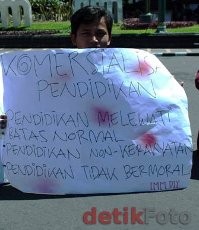 KOMERSIAL
PENDIDIKAN
PENDIDIKAN MELEWATI
BATAS NORMAL
PENDIDIKAN NON-KERAKYATAN
PENDIDIKAN TIDAK BERMORAL
detikFoto